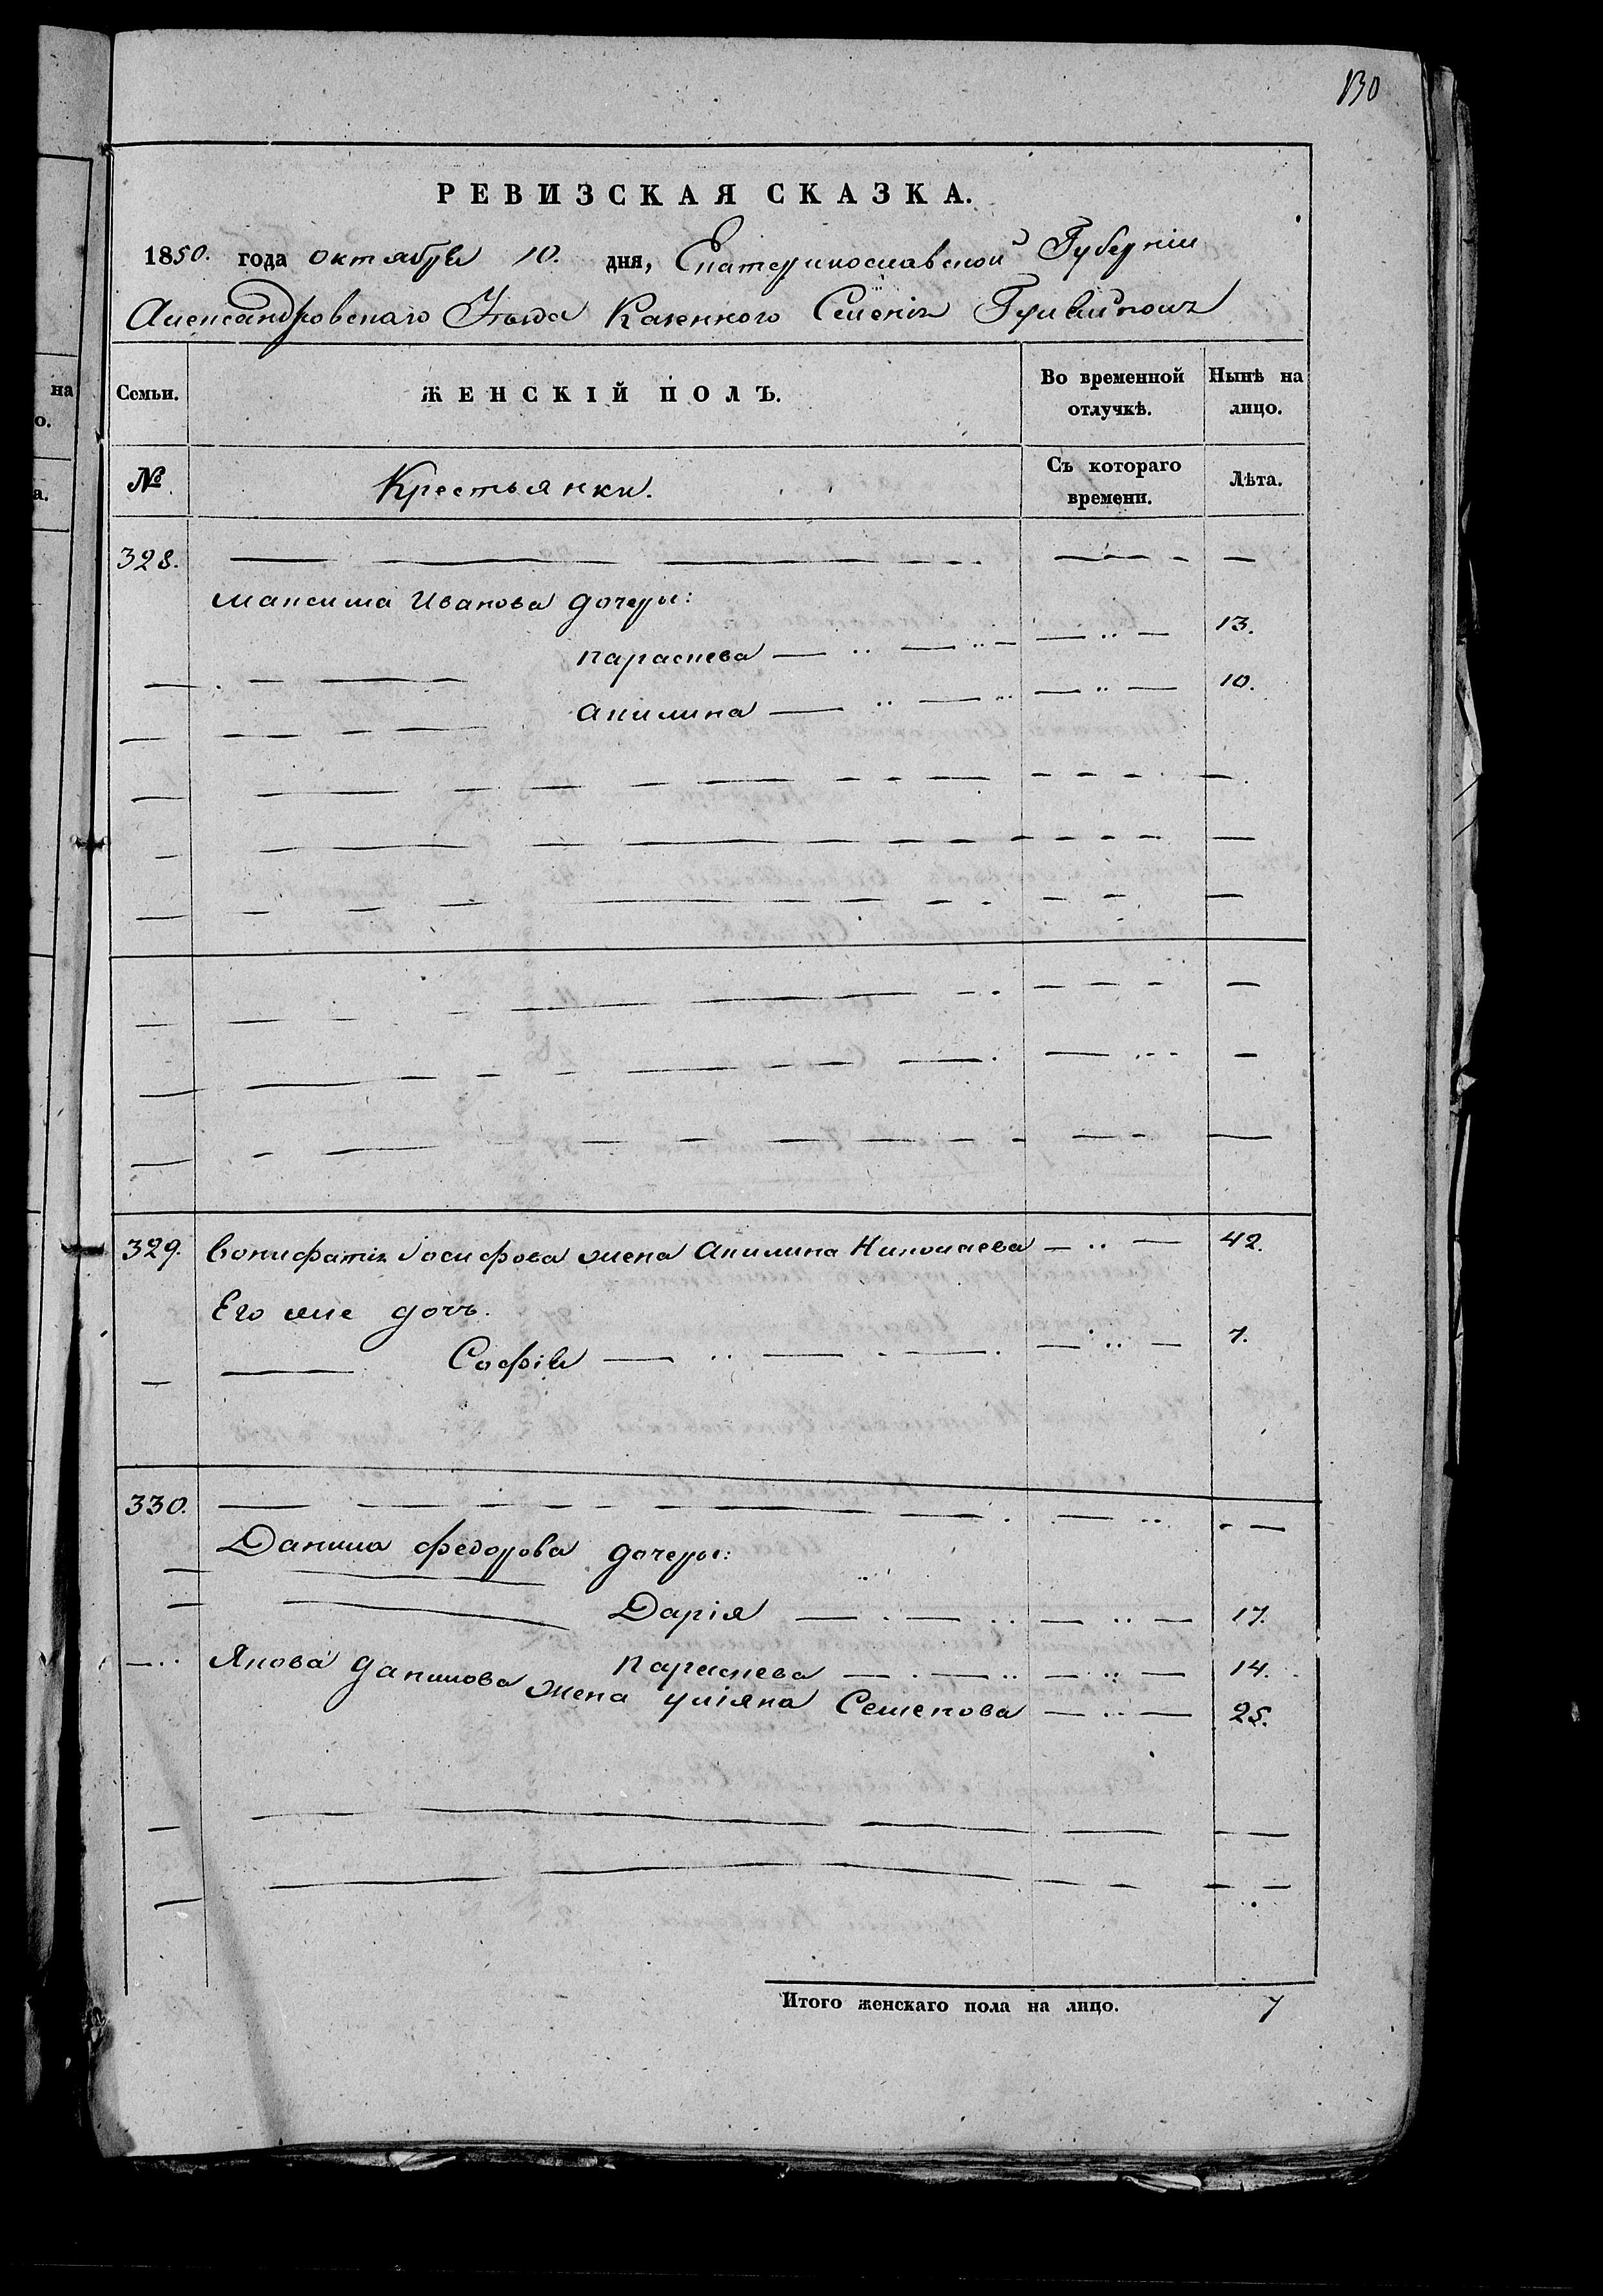 130
РЕВИЗСКАЯ СКАЗКА.
1850. года октября 10. дня, Екатеринославской Губерніи
Александровскаго Уѣзда Казеннаго Селенія
Семьи. ЖЕНСКІЙ ПОЛЪ. Во временной отлучкѣ. Нынѣ на лицо.
№ Крестьянки. Съ котораго времени. Лѣта.
328.
Максима Иванова дочери:
Параскева 13.
Акилина 10.
329. Вонифатія Іосифова жена Акилина Николаева 42.
Его же дочь.
Софія 7.
330.
Данила Федорова дочери:
Дарія 17.
Параскева 14.
Якова Данилова жена Уліяна Семенова 25.
Итого женскаго пола на лицо. 7
на
о.
а.